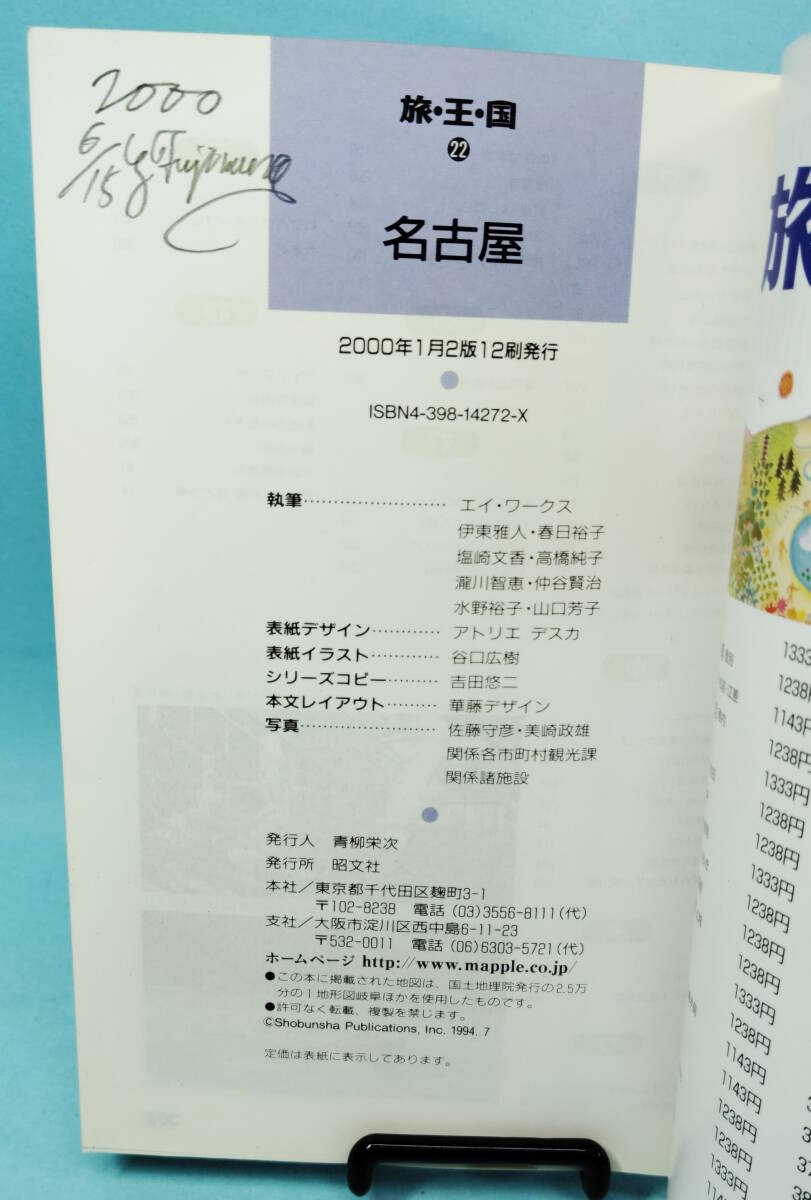 2000
6/15
旅・王・国
22
名古屋
2000年1月2版12刷発行
ISBN4-398-14272-X
執筆……………………エイ・ワークス
伊東雅人・春日裕子
塩崎文香・高橋純子
瀧川智恵・仲谷賢治
水野裕子・山口芳子
表紙デザイン…………アトリエ デスカ
表紙イラスト…………谷口広樹
シリーズコピー………吉田悠二
本文レイアウト………華藤デザイン
写真……………………佐藤守彦・美崎政雄
関係各市町村観光課
関係諸施設
発行人 青柳栄次
発行所 昭文社
本社／東京都千代田区麹町3-1
〒102-8238 電話 (03)3556-8111(代)
支社／大阪市淀川区西中島6-11-23
〒532-0011 電話 (06)6303-5721(代)
ホームページ http://www.mapple.co.jp/
●この本に掲載された地図は、国土地理院発行の2.5万
分の1地形図岐阜ほかを使用したものです。
●許可なく転載、複製を禁じます。
©Shobunsha Publications, Inc. 1994. 7
定価は表紙に表示してあります。
旅
1333
1238円
1143円
1238円
1333円
1238円
1238円
1333円
1238円
1238円
1238円
1333円
1238円
1143円
1143円
1238円
1238円
1333円